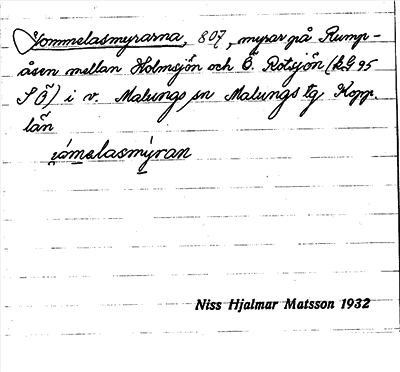 Jommelasmyrarna, 807, myrar på Rump-
åsen mellan Holmsjön och Ö. Rotsjön (kG 95
SÖ) i v. Malungs sn Malungs tg Kopp.
län
jámelasmýran
Niss Hjalmar Matsson 1932